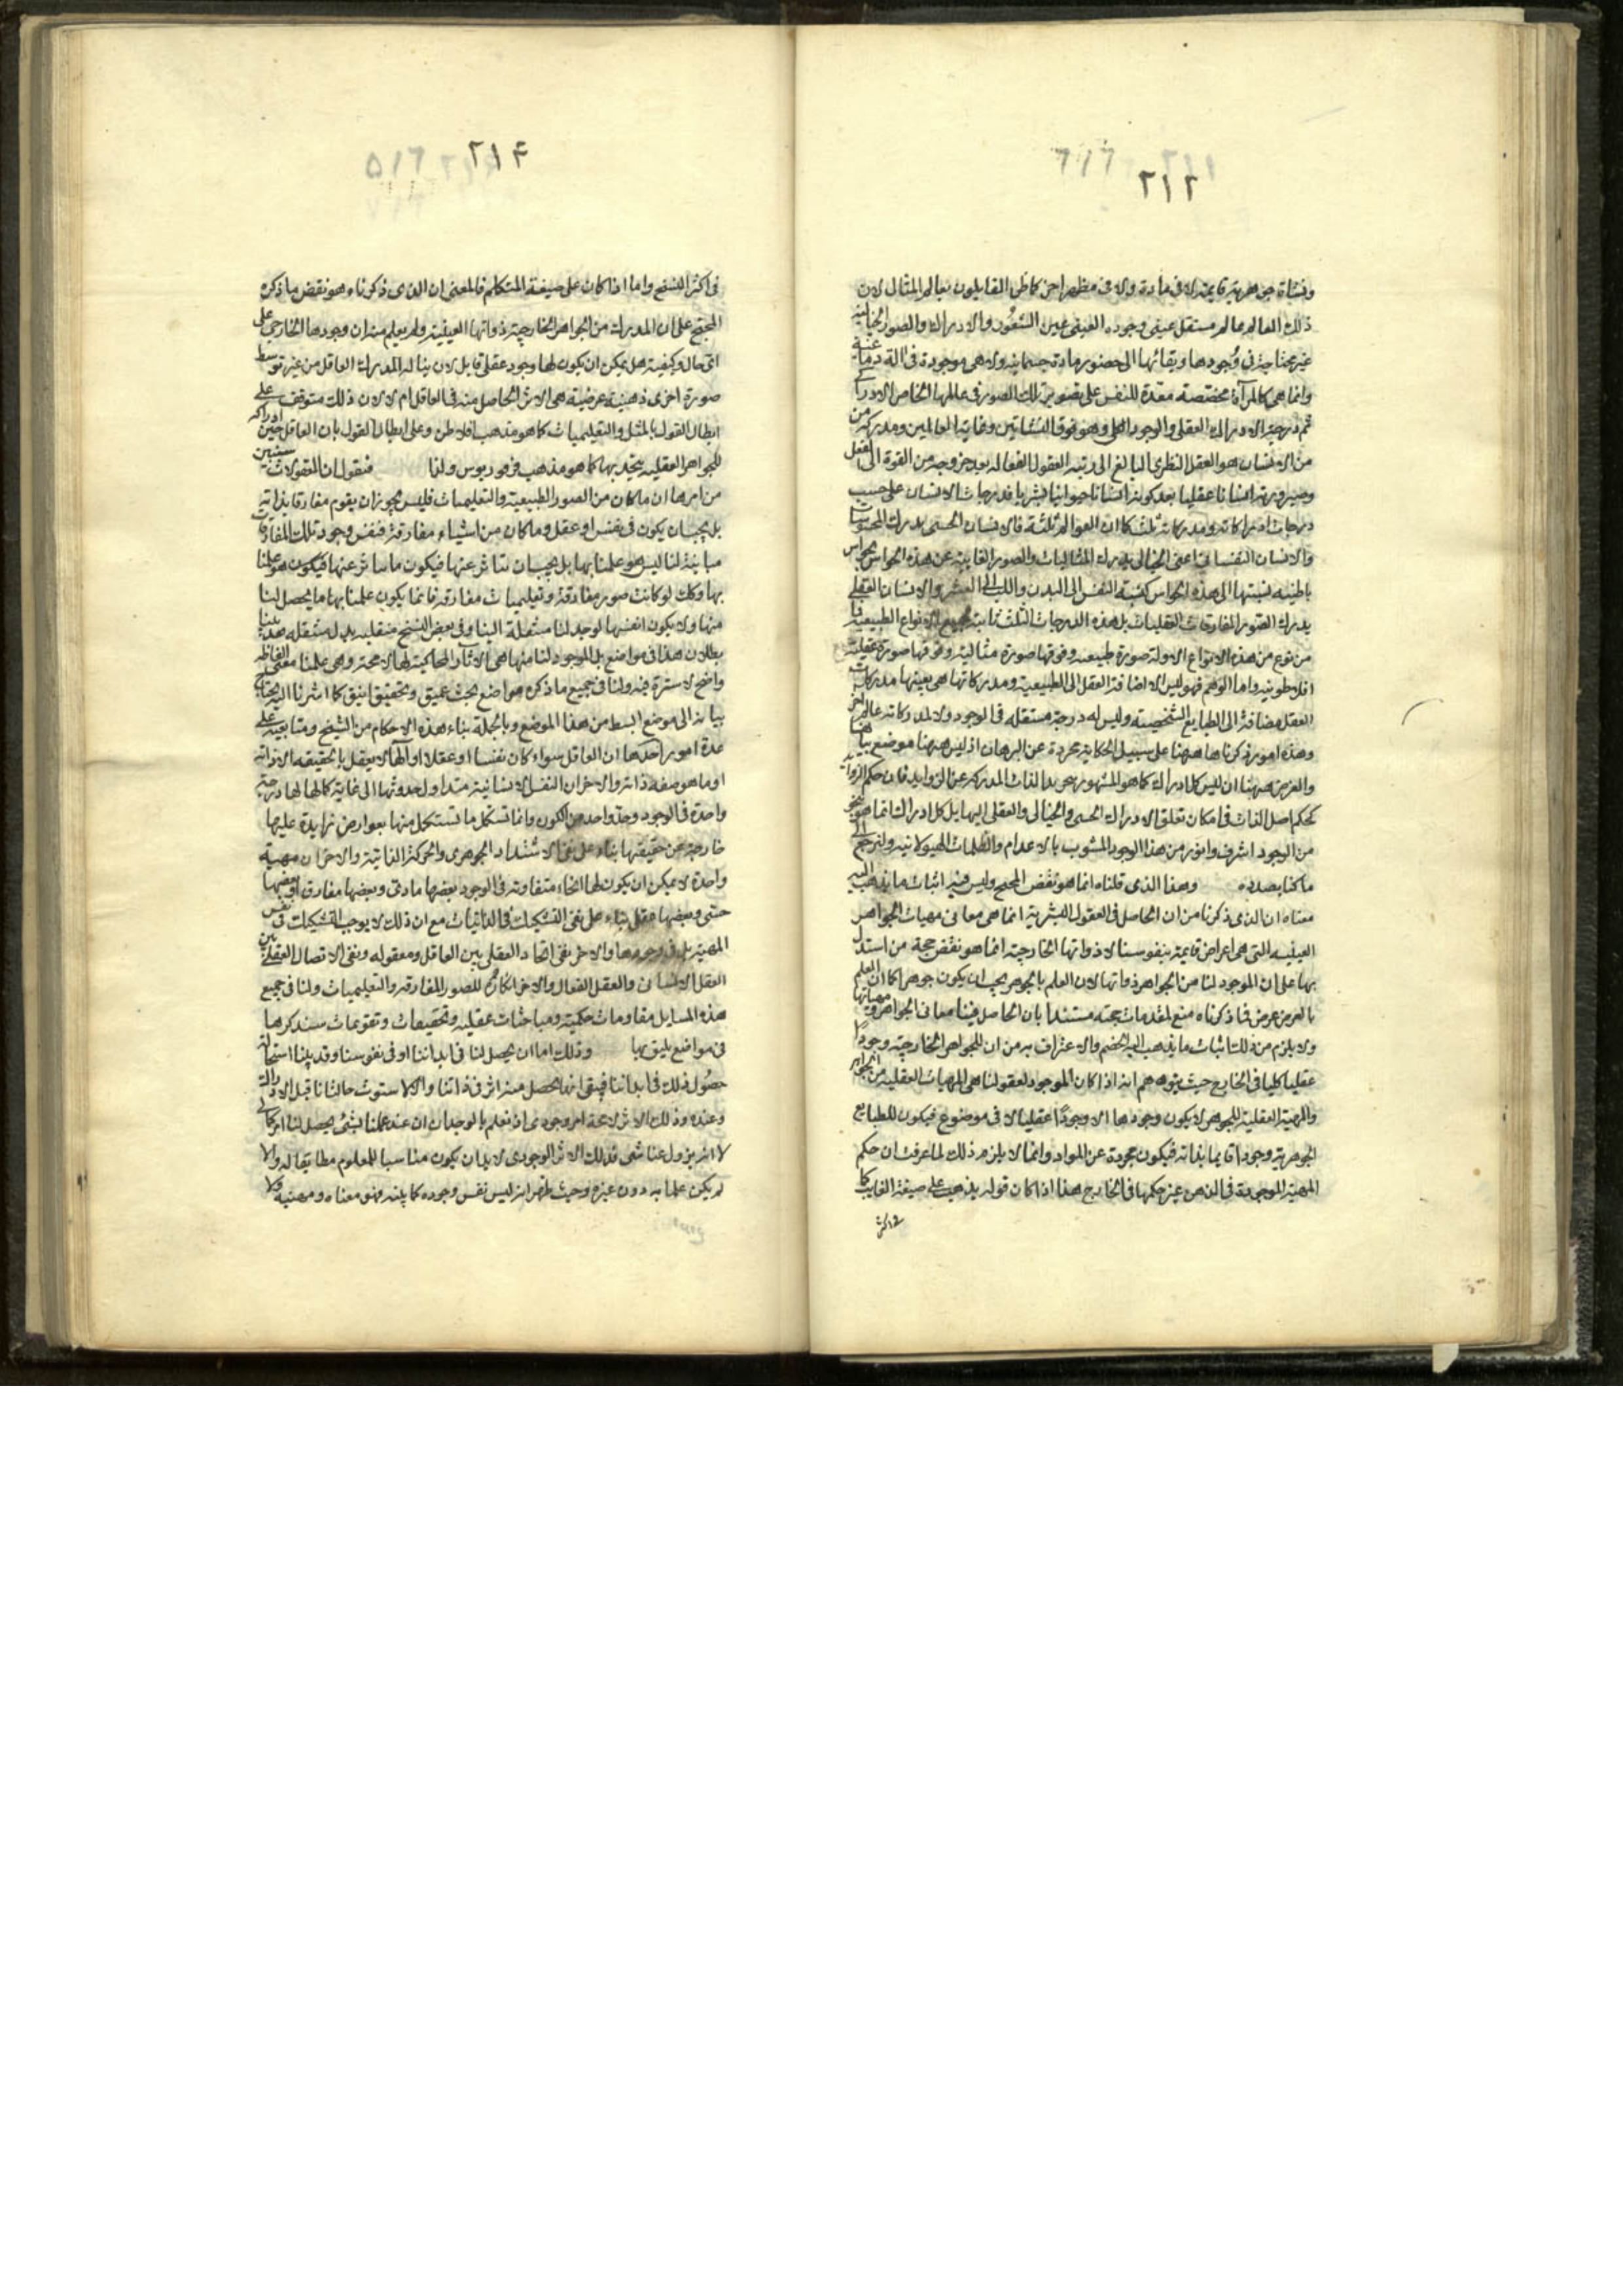 ٢١٢
ونشاة جوهرية قايمة لا فى مادة ولا فى مظهر اخر كما ظن القايلون بعالم المثال لان
ذلك العالم عالم مستقل عينى وجوده العينى عين الشعور والادراك والصور الخيالية
غير محتاجة فى وجودها وبقائها الى حضور مادة جسمانية ولا هى موجودة فى الة دماغية
وانما هى كالمرآة مخصصة معدة للنفس على تصوير تلك الصور فى عالمها الخاص الادراكى
ثم درجة الادراك العقلى والوجود العقلى وهو فوق النشاتين وغاية العالمين ومدركه من
من الانسان هو العقل النظرى البالغ الى رتبة العقول الفعاله بعد خروجه من القوة الى الفعل
وصيرورته انسانا عقليا بعد كونه انسانا حيوانيا بشريا فدرجات الانسان على حسب
درجات ادراكاته ومدركاته ثلث كما ان العوالم ثلثة فالانسان الحسى يدرك المحسوسات
والانسان النفسانى اعنى الخيالى يدرك المثاليات والصور الغايبة عن هذه الحواس بحواس
باطنية نسبتها الى هذه الحواس كنسبة النفس الى البدن واللب الى القشر والانسان العقلى
يدرك الصور المفارقات العقليات بل هذه الدرجات الثلث ثابتة لجميع الانواع الطبيعية
من نوع من هذه الانواع الا وله صورة طبيعيه وفوقها صورة مثالية وفوقها صورة عقلية
افلاطونيه واما الوهم فهو ليس الا اضافة العقل الى الطبيعية ومدركاتها هى بعينها مدركات
العقل مضافة الى الطبايع الشخصية وليس له درجة مستقله فى الوجود ولا لمدركاته عالم اخر
وهذه امور ذكرناها ههنا على سبيل الحكاية مجردة عن البرهان اذ ليس ههنا موضع بيانها
والغرض ههنا ان ليس كل ادراك كما هو المشهور بتجريد الذات المدركة عن الزوايد فان حكم الزوايد
كحكم اصل الذات فى امكان تعلق الادراك الحسى والخيالى والعقلى اليها بل كل ادراك انما هو بنحو
من الوجود اشرف وانور من هذا الوجود المشوب بالاعدام والظلمات الهيولانية ولنرجع الى
ماكنا بصدده وهذا الذى قلناه انما هو نقض الحجج وليس فيه اثبات ما يذهب اليه
معناه ان الذى ذكرنا من ان الحاصل فى العقول البشرية انما هى معانى مهيات الجواهر
العينيه التى هى اعراض قايمة بنفوسنا لا ذواتها الخارجية انما هو نقض حجة من استدل
بها على ان الموجود لنا من الجواهر ذواتها لان العلم بالجوهر يجب ان يكون جوهرا كما ان العلم
بالعرض عرض فما ذكرناه منع لمقدمات حجته مستندا بان الحاصل فينا معانى الجواهر ومهياتها
ولا يلزم من ذلك اثبات ما يذهب اليه الخصم والاعتراف به من ان للجواهر الخارجية وجودا
عقليا كليا فى الخارج حيث يتوهم انه اذا كان الموجود لعقولنا هى المهيات العقلية من الجواهر
والمهية العقلية للجوهر لا يكون وجودها الا وجودًا عقليا لا فى موضوع فيكون للطبايع
الجوهرية وجودا قايما بذاته فيكون مجردة عن المواد وانما لا يلزم ذلك لما عرفت ان حكم
المهية الموجودة فى الذهن غير حكمها فى الخارج هذا اذا كان قوله يذهب على صيغة الغايب كما
٢١٤
فى اكثر النسخ واما اذا كان على صيغة المتكلم فالمعنى ان الذى ذكرناه هو نقض ما ذكره
المحتج على ان المدرك من الجواهر الخارجية ذواتها العينية ولم يعلم منه ان وجودها الخارجى على
اى حال وكيفية هل يمكن ان يكون لها وجود عقلى قابل لان يناله المدرك العاقل من غير توسط
صورة اخرى ذهنية عرضية هى الاثر الحاصل منه فى العاقل ام لا لان ذلك متوقف على
ابطال القول بالمثل والتعليميات كما هو مذهب افلاطن وعلى ابطال القول بان العاقل حين ادراكه
للجواهر العقليه يتحد بها كما هو مذهب فرفوريوس ولنا فنقول ان المعقولات سنبين
من امرها ان ما كان من الصور الطبيعية والتعليميات فليس يجوز ان يقوم مفارقا بذاته
بل يجب ان يكون فى نفس او عقل وما كان من اشياء مفارقة فنفس وجود تلك المفارقات
مباينة لنا ليس هو علمنا بها بل يجب ان نتاثر عنها فيكون ما يتاثر عنها فيكون هو علمنا
بها وكك لو كانت صور مفارقة وتعليميات مفارقة فانما يكون علمنا بها ما يحصل لنا
منها ولا يكون انفسها لوجد لنا منتقلة الينا وفى بعض النسخ منقلبه بدل منتقله فقد بينا
بطلان هذا فى مواضع بل الموجود لنا منها هى الاثار المحاكية لها لا محة وهى علمنا معنى الفاظه
واضح لا سترة فيه ولنا فى جميع ما ذكره مواضع بحث عميق وتحقيق انيق كما اشرنا اليه يحتاج
بيانه الى موضع ابسط من هذا الموضع وبالجملة بناء هذه الاحكام من الشيخ ومتابعيه على
عدة امور احدها ان العاقل سواء كان نفسا او عقلا او الها لا يعقل بالحقيقه الا ذاته
او ما هو صفه ذاته والاخر ان النفس الانسانية مبدا اول حدوثها الى غاية كمالها لها درجة
واحدة فى الوجود وحد واحد من الكون وانما تستكمل ما تستكمل منها بعوارض زايدة عليها
خارجة عن حقيقتها بناء على نفى الاشتداد الجوهرى والحركة الذاتية والاخر ان مهية
واحدة لا يمكن ان يكون لها انحاء متفاوته فى الوجود بعضها مادى وبعضها مفارق او بعضها
حسى وبعضها عقلى بناء على نفى التشكيك فى الذاتيات مع ان ذلك لا يوجب التشكيك فى نفس
المهية بل فى وجودها والاخر نفى اتحاد العقلى بين العاقل ومعقوله ونفى الاتصال العقلى بين
العقل الانسانى والعقل الفعال والاخر انكارهم للصور المفارقه والتعليميات ولنا فى جميع
هذه المسايل مقاومات حكمية ومباحثات عقليه وتحقيقات وتقويمات سنذكرها
فى مواضع يليق بها وذلك اما ان يحصل لنا فى ابداننا او فى نفوسنا وقد بينا استحالة
حصول ذلك فى ابداننا فبقى انها يحصل منه اثر فى ذاتنا والا لاستوت حالتانا قبل الادراك
وعنده وذلك الاثر لا محة امر وجودى اذ نعلم بالوجدان ان عند علمنا بشئ يحصل لنا امر كمالى
لا انه يزول عنا شى فذلك الاثر الوجودى لابد ان يكون مناسبا للمعلوم مطابقا له والا
لم يكن علما به دون غيره وحيث ظهر انه ليس نفس وجوده كما بينه فهو معناه ومهيته ولا